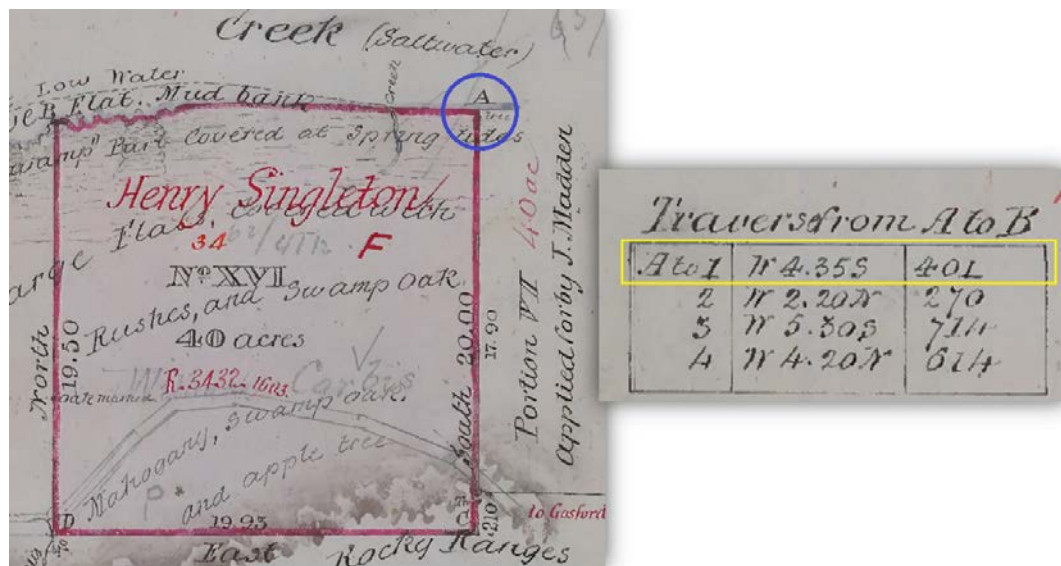 Creek (Saltwater)
Low Water
B Flat. Mud bank
A
Creek
Tree
Swamp" Part Covered at Spring tides
Henry Singleton
Flat, Covered with
34
F
No XVI
Rushes, and Swamp Oak
40 acres
R.3432.1603.
Mahogany, Swamp oak.
and apple tree
North 19.50
South 20.00
17.90
Portion VII 40ac
Applied for by J. Madden
D
19.93
C
210
to Gosford
East
Rocky Ranges
Travers from A to B
A to 1 W 4.35 S 401
2 W 2.20 N 270
3 W 5.30 S 714
4 W 4.20 N 614